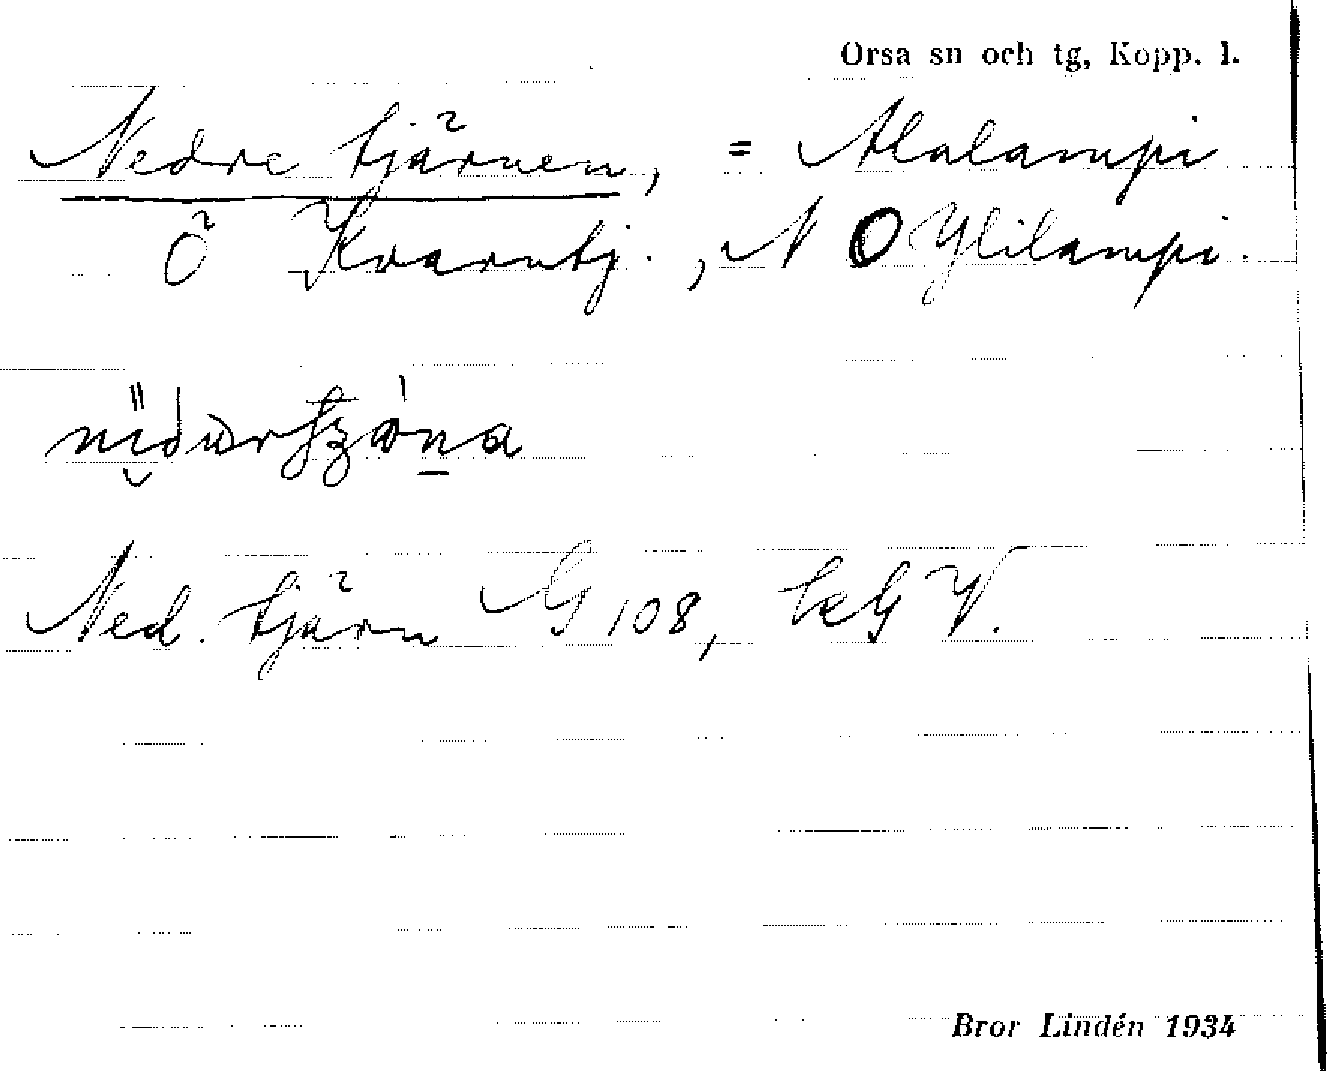 Orsa sn och tg, Kopp. l.
Nedre tjärnen, = Alalampi
Ö Kvarntj., N O Ylilampi.
Ned. tjärn G 108, V.
Bror Lindén 1934